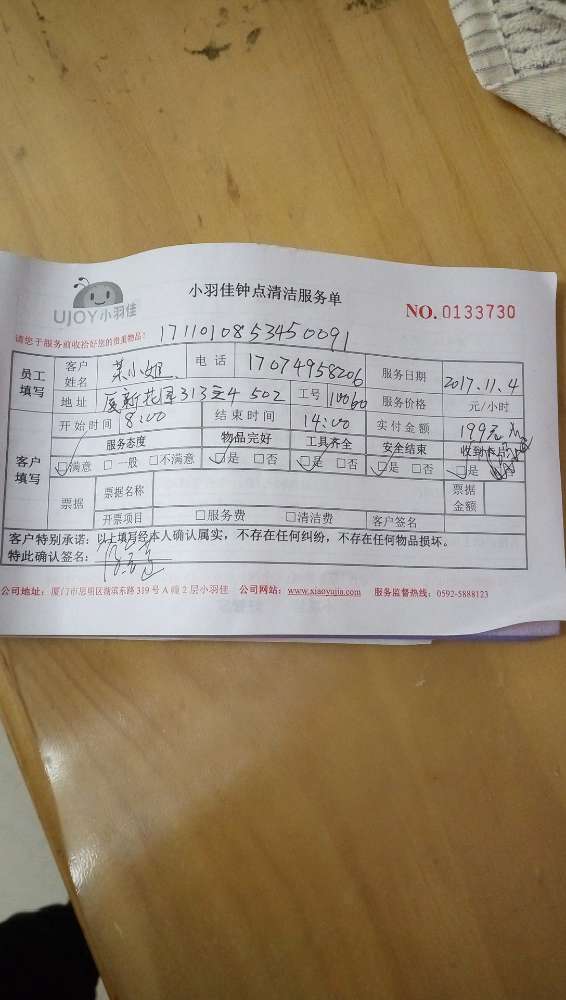 UJOY小羽佳
小羽佳钟点清洁服务单
NO. 0133730
请您于服务前收拾好您的贵重物品!
1711010853450091
员工填写 客户姓名 某小姐 电话 17074958206 服务日期 2017.11.4
地址 厦新花园313之4 502 工号 10060 服务价格 元/小时
开始时间 8:00 结束时间 14:00 实付金额 199元
客户填写 服务态度 物品完好 工具齐全 安全结束 收到卡片
□满意 □一般 □不满意 □是 □否 □是 □否 □是 □否 □是
票据 票据名称 票据金额
开票项目 □服务费 □清洁费 客户签名
客户特别承诺:以上填写经本人确认属实,不存在任何纠纷,不存在任何物品损坏。
特此确认签名:
公司地址:厦门市思明区湖滨东路319号A幢2层小羽佳 公司网站:www.xiaoyujia.com 服务监督热线:0592-5888123